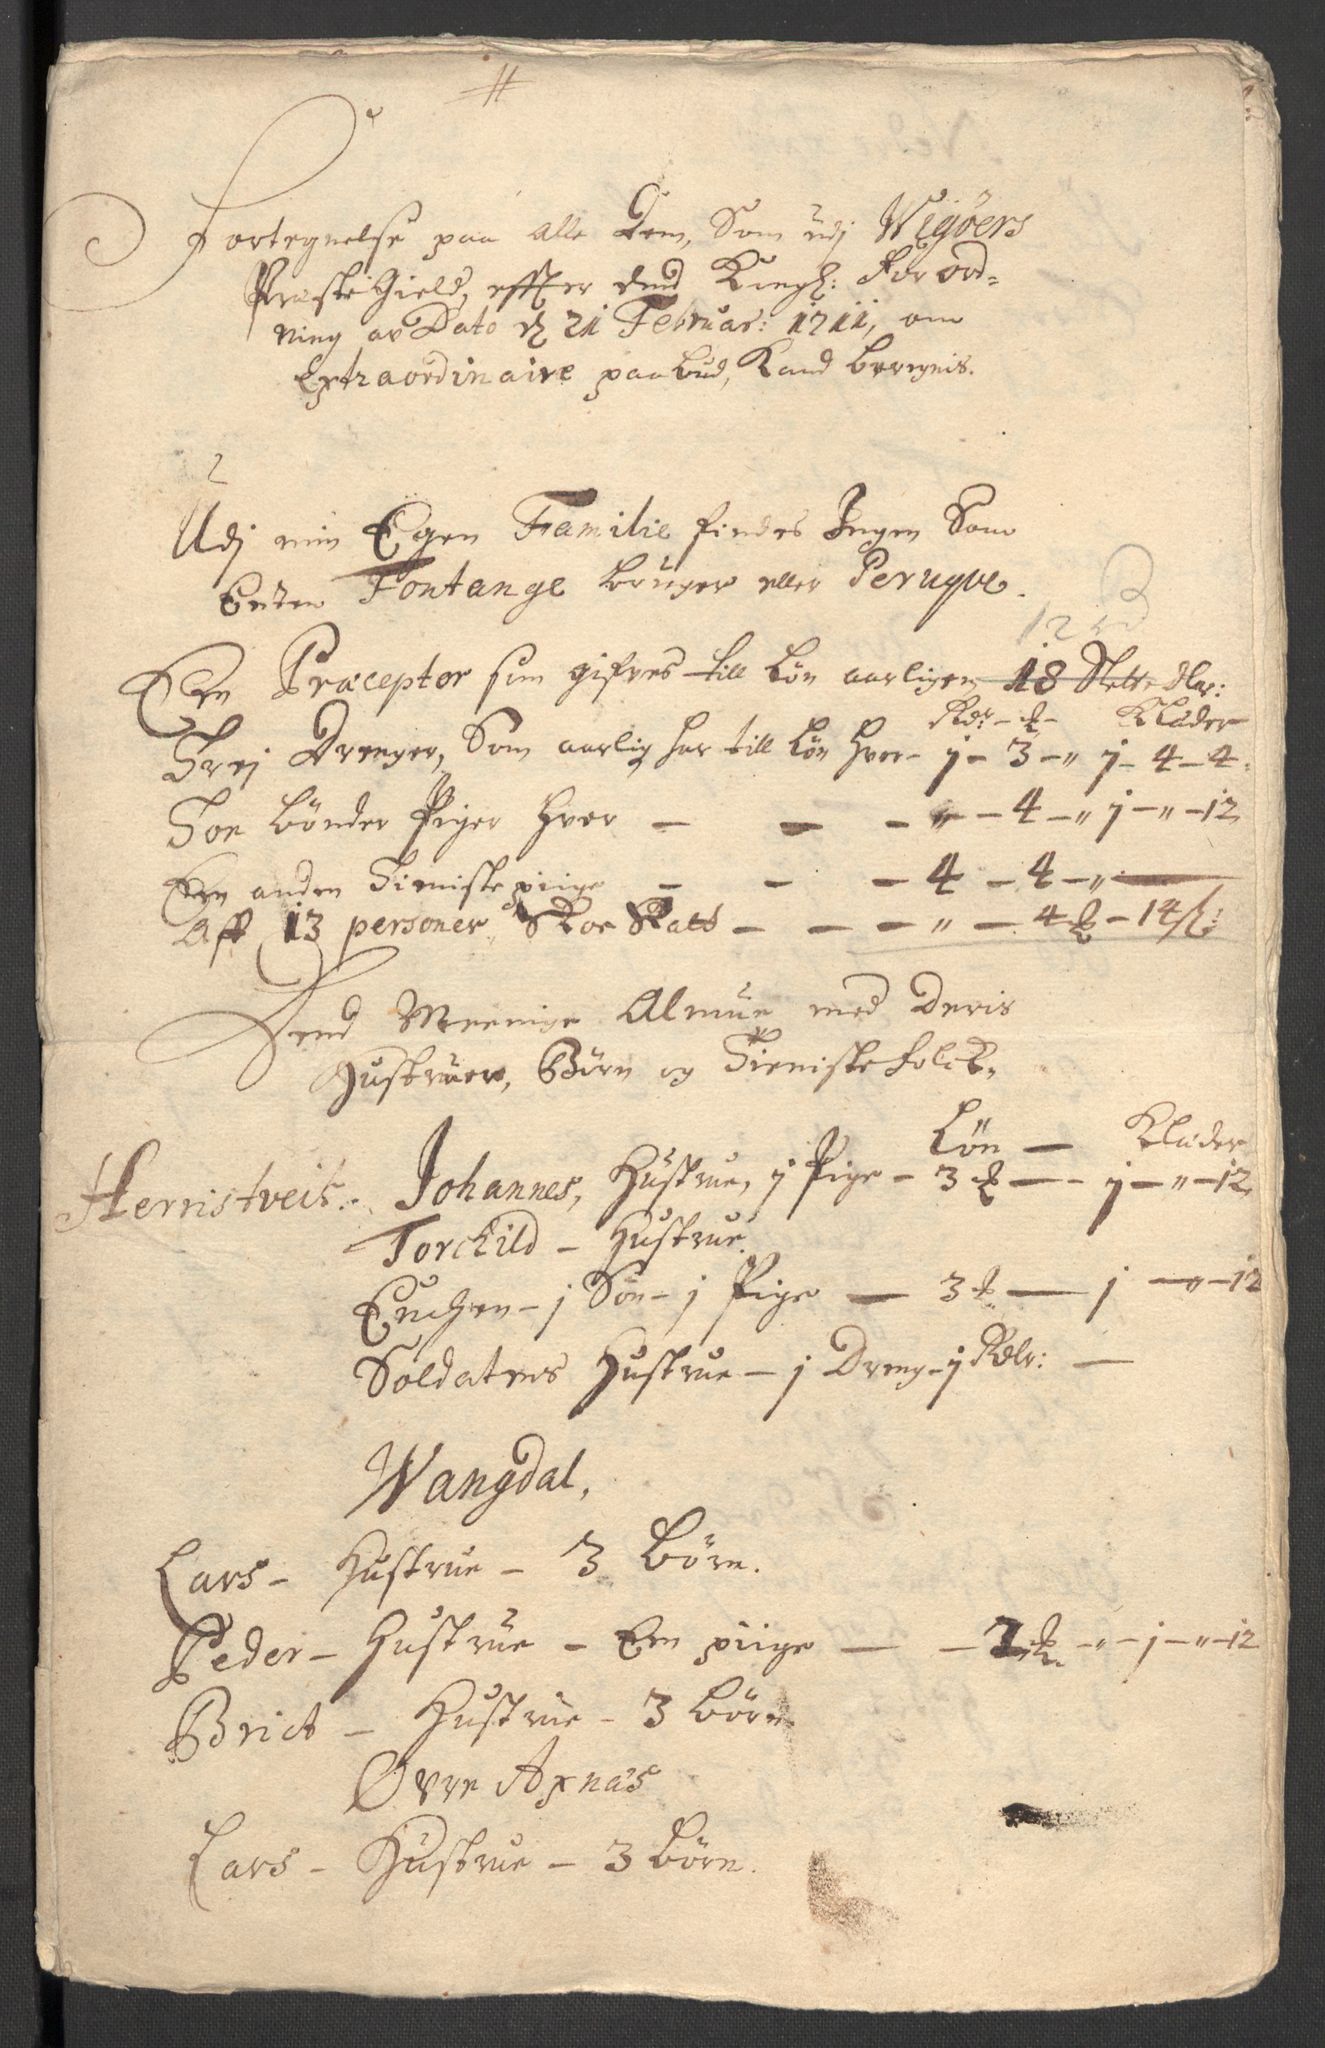 Fortegnelse paa alle Dem, Som udj Wigöers
Præste Gield, effter dend Kongl: Forord-
ning av Dato d 21 Februar: 1711, om
Extraordinaire paabud, Kand beregnis.
Udj min Egen Familie findes Ingen Som
Enten Fontange bruger eller Peruqve.
Een Præceptor som gifves till Løn aarligen 18 Slette dlr:
Rdr - ₰ - Klæder
Trej Drenger, Som aarlig har till Løn hver - j - 3 - " j - 4 - 4.
Toe bönder Piger hver - - - " - 4 - " j - " - 12
Een anden Tieniste piige - - - 4 - 4 - "
Aff 13 personer Skoe Skatt - - - " - 4 ₰ - 14 ß:
Dend Meenige Almue med Deris
Hustruer, Börn og Tieniste folck,
Løn - Klæder
Herristveit. Johannes, Hustrue, j Pige - 3 ₰ - - j - " - 12
Torckild - Hustrue.
Enchen - j Søn - j Pige - 3 ₰ - j - " - 12
Soldatens Hustrue - j Dreng - j Rdlr: -
Wangdal,
Lars - Hustrue - 3 börn.
Peder - Hustrue - Een piige - - 2 ₰ - " - j - " - 12
Brict - Hustrue - 3 börn
Øvre Axnæs
Lars - Hustrue - 3 börn.